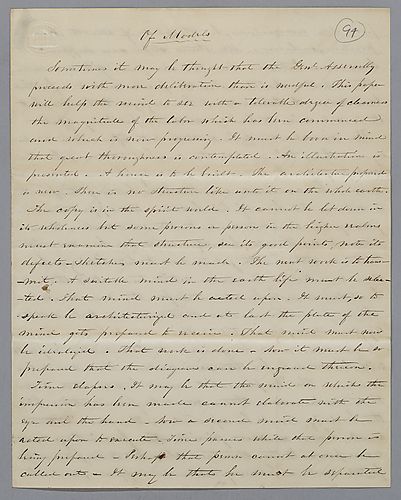 94
Of Models
Sometimes it may be thought that the Genl. Assembly
proceeds with more deliberation than is needful. This paper
will help the mind to see with a tolerable degree of clearness
the magnitude of the labor which has been commenced
and which is now progressing. It must be borne in mind
that great thoroughness is contemplated. An illustration is
presented. A house is to be built. The architecture proposed
is new. There is no structure like unto it on the whole earth.
The copy is in the spirit world. It cannot be let down in
its wholeness but some persons or person in the higher
must examine that structure, see its good points, note its
defects - sketches must be made. The next work is to trans-
mit. A suitable mind in the earth life must be selec-
ted. That mind must be acted upon. It must, so to
speak be architecturized and at last the plate of the
mind gets prepared to receive. That mind must now
be . That work is done & now it must be so
prepared that the can be engraved thereon.
Time elapses. It may be that the mind on which the
impression has been made cannot elaborate with the
eye and the hand - Now a second mind must be
acted upon to execute - Time passes while that person is
being prepared - Perhaps that person cannot at once be
called out - It may be that he must be separated